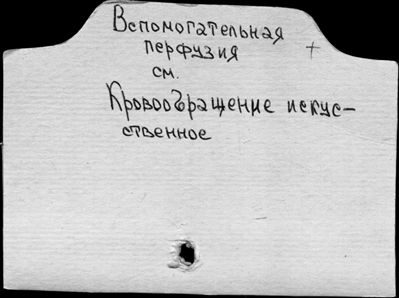 Вспомогательная
перфузия +
см.
Кровообращение искус-
ственное